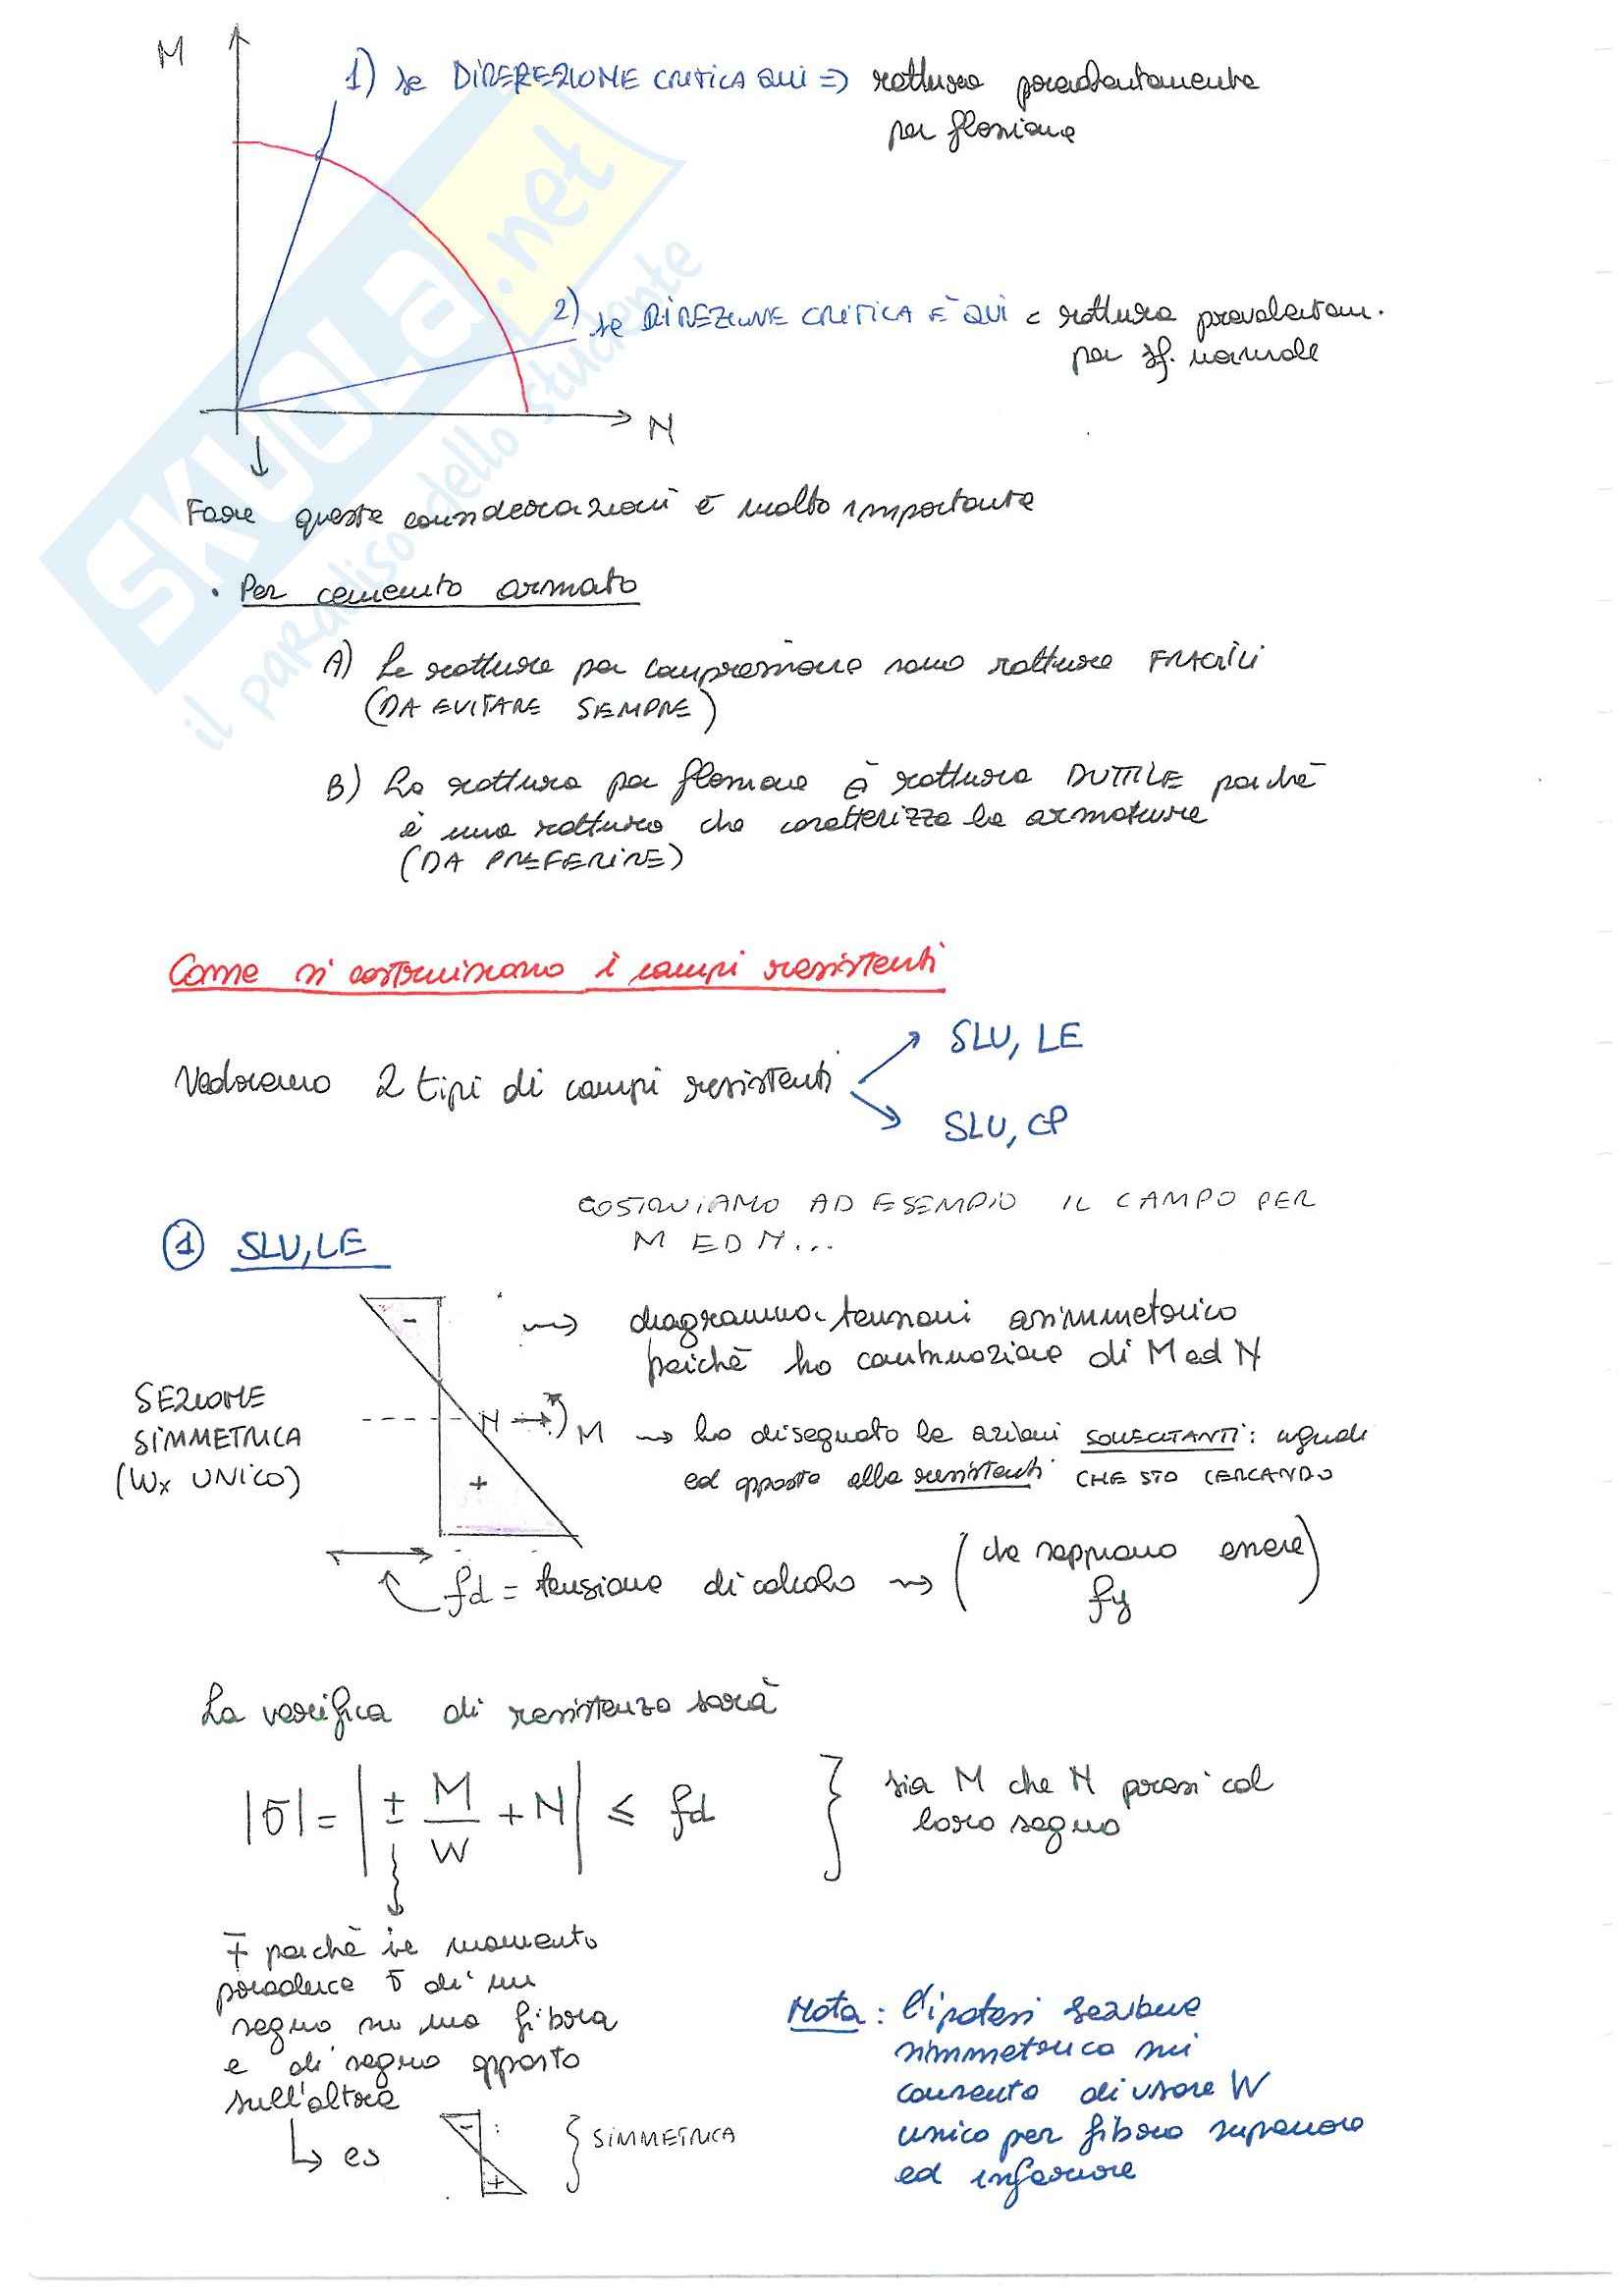 M
1) se DIREREZIONE CRITICA QUI => rottura prevalentemente
per flessione
2) se DIREZIONE CRITICA È QUI = rottura prevalentem.
per sf. normale
N
Fare queste considerazioni è molto importante
• Per cemento armato
A) Le rotture per compressione sono rotture FRAGILI
(DA EVITARE SEMPRE)
B) La rottura per flessione è rottura DUTTILE poichè
è una rottura che caratterizza le armature
(DA PREFERIRE)
Come si costruiscono i campi resistenti
Vedremo 2 tipi di campi resistenti
SLU, LE
SLU, CP
COSTRUIAMO AD ESEMPIO IL CAMPO PER
M ED N...
1 SLU, LE
- diagramma tensioni asimmetrico
poichè ho combinazione di M ed N
SEZIONE
SIMMETRICA
(Wx UNICO)
N M ho disegnato le azioni SOLLECITANTI: uguali
ed opposte alle resistenti CHE STO CERCANDO
+
fd = tensione di calcolo (che sappiamo essere
fy)
La verifica di resistenza sarà
|σ| = | ± M/W + N | ≤ fd } sia M che N presi col
loro segno
∓ perchè il momento
produce σ di un
segno su una fibra
e di segno opposto
sull'altra
es - + } SIMMETRICA
Nota: l'ipotesi sezione
simmetrica mi
consente di usare W
unico per fibra superiore
ed inferiore
SKUOLA.net
il paradiso dello studente